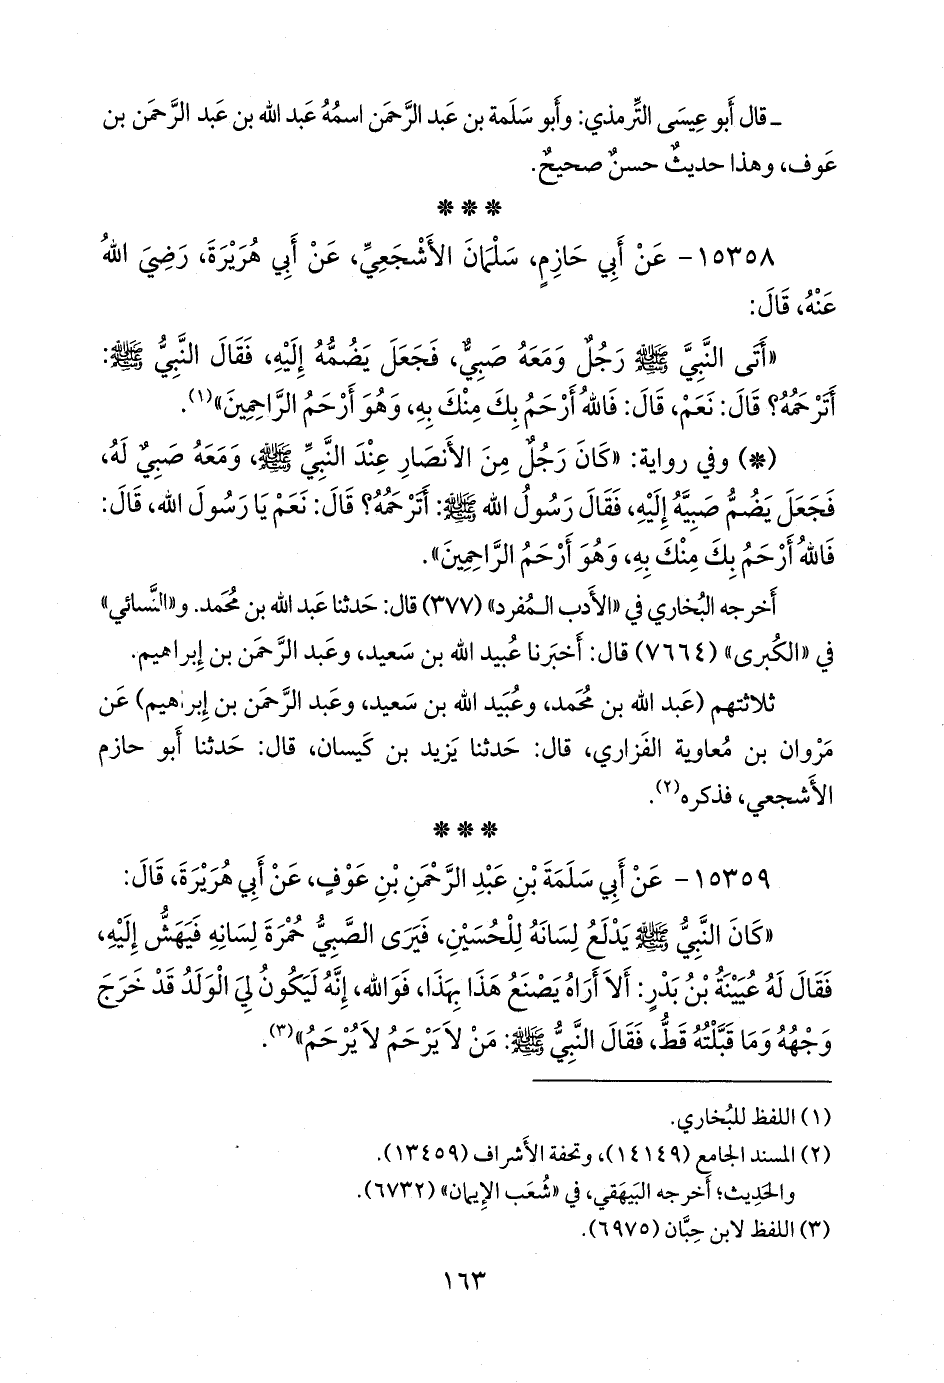 ـ قال أَبو عِيسَى التِّرمذي: وأَبو سَلَمة بن عَبد الرَّحمَن اسمُهُ عَبد الله بن عَبد الرَّحمَن بن
عَوف، وهذا حديثٌ حسنٌ صحيحٌ.
* * *
١٥٣٥٨- عَنْ أَبِي حَازِمٍ، سَلْمَانَ الأَشْجَعِيِّ، عَنْ أَبِي هُرَيْرَةَ، رَضِيَ اللهُ
عَنْهُ، قَالَ:
«أَتَى النَّبِيَّ ﷺ رَجُلٌ وَمَعَهُ صَبِيٌّ، فَجَعَلَ يَضُمُّهُ إِلَيْهِ، فَقَالَ النَّبِيُّ ﷺ:
أَتَرْحَمُهُ؟ قَالَ: نَعَمْ، قَالَ: فَاللهُ أَرْحَمُ بِكَ مِنْكَ بِهِ، وَهُوَ أَرْحَمُ الرَّاحِمِينَ»(١).
(*) وفي رواية: «كَانَ رَجُلٌ مِنَ الأَنصَارِ عِنْدَ النَّبِيِّ ﷺ، وَمَعَهُ صَبِيٌ لَهُ،
فَجَعَلَ يَضُمُّ صَبِيَّهُ إِلَيْهِ، فَقَالَ رَسُولُ الله ﷺ: أَتَرْحَمُهُ؟ قَالَ: نَعَمْ يَا رَسُولَ الله، قَالَ:
فَاللهُ أَرْحَمُ بِكَ مِنْكَ بِهِ، وَهُوَ أَرْحَمُ الرَّاحِمِينَ».
أَخرجه البُخاري في «الأَدب المُفرد» (٣٧٧) قال: حَدثنا عَبد الله بن مُحمد. و«النَّسائي»
في «الكُبرى» (٧٦٦٤) قال: أَخبَرنا عُبيد الله بن سَعيد، وعَبد الرَّحمَن بن إِبراهيم.
ثلاثتهم (عَبد الله بن مُحمد، وعُبَيد الله بن سَعيد، وعَبد الرَّحمَن بن إِبراهيم) عَن
مَرْوان بن مُعاوية الفَزاري، قال: حَدثنا يَزيد بن كَيسان، قال: حَدثنا أَبو حازم
الأَشجعي، فذكره(٢).
* * *
١٥٣٥٩- عَنْ أَبِي سَلَمَةَ بْنِ عَبْدِ الرَّحْمَنِ بْنِ عَوْفٍ، عَنْ أَبِي هُرَيْرَةَ، قَالَ:
«كَانَ النَّبِيُّ ﷺ يَدْلَعُ لِسَانَهُ لِلْحُسَيْنِ، فَيَرَى الصَّبِيُّ حُمْرَةَ لِسَانِهِ فَيَهَشُّ إِلَيْهِ،
فَقَالَ لَهُ عُيَيْنَةُ بْنُ بَدْرٍ: أَلاَ أَرَاهُ يَصْنَعُ هَذَا بِهَذَا، فَوَالله، إِنَّهُ لَيَكُونُ لِيَ الْوَلَدُ قَدْ خَرَجَ
وَجْهُهُ وَمَا قَبَّلْتُهُ قَطُّ، فَقَالَ النَّبِيُّ ﷺ: مَنْ لاَ يَرْحَمُ لاَ يُرْحَمُ»(٣).
(١) اللفظ للبُخاري.
(٢) المسند الجامع (١٤١٤٩)، وتحفة الأَشراف (١٣٤٥٩).
والحَدِيث؛ أَخرجه البَيهَقي، في «شُعَب الإِيمان» (٦٧٣٢).
(٣) اللفظ لابن حِبَّان (٦٩٧٥).
١٦٣